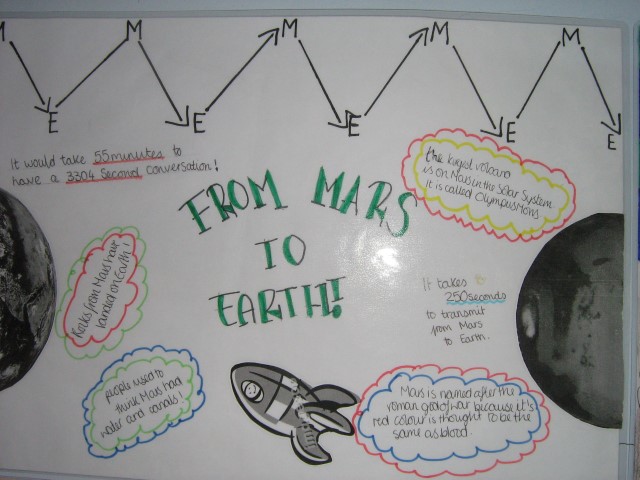 M M M M M
E E E E E
It would take 55minutes to
have a 3304 Second conversation!
the largest volcano
is on Mars in the Solar System
it is called Olympus Mons.
FROM MARS
TO
EARTH!
Rocks from Mars have
landed on Earth!
It takes
250seconds
to transmit
from Mars
to Earth.
people used to
think Mars had
water and canals!
Mars is named after the
roman god of war because it's
red colour is thought to be the
same as blood.